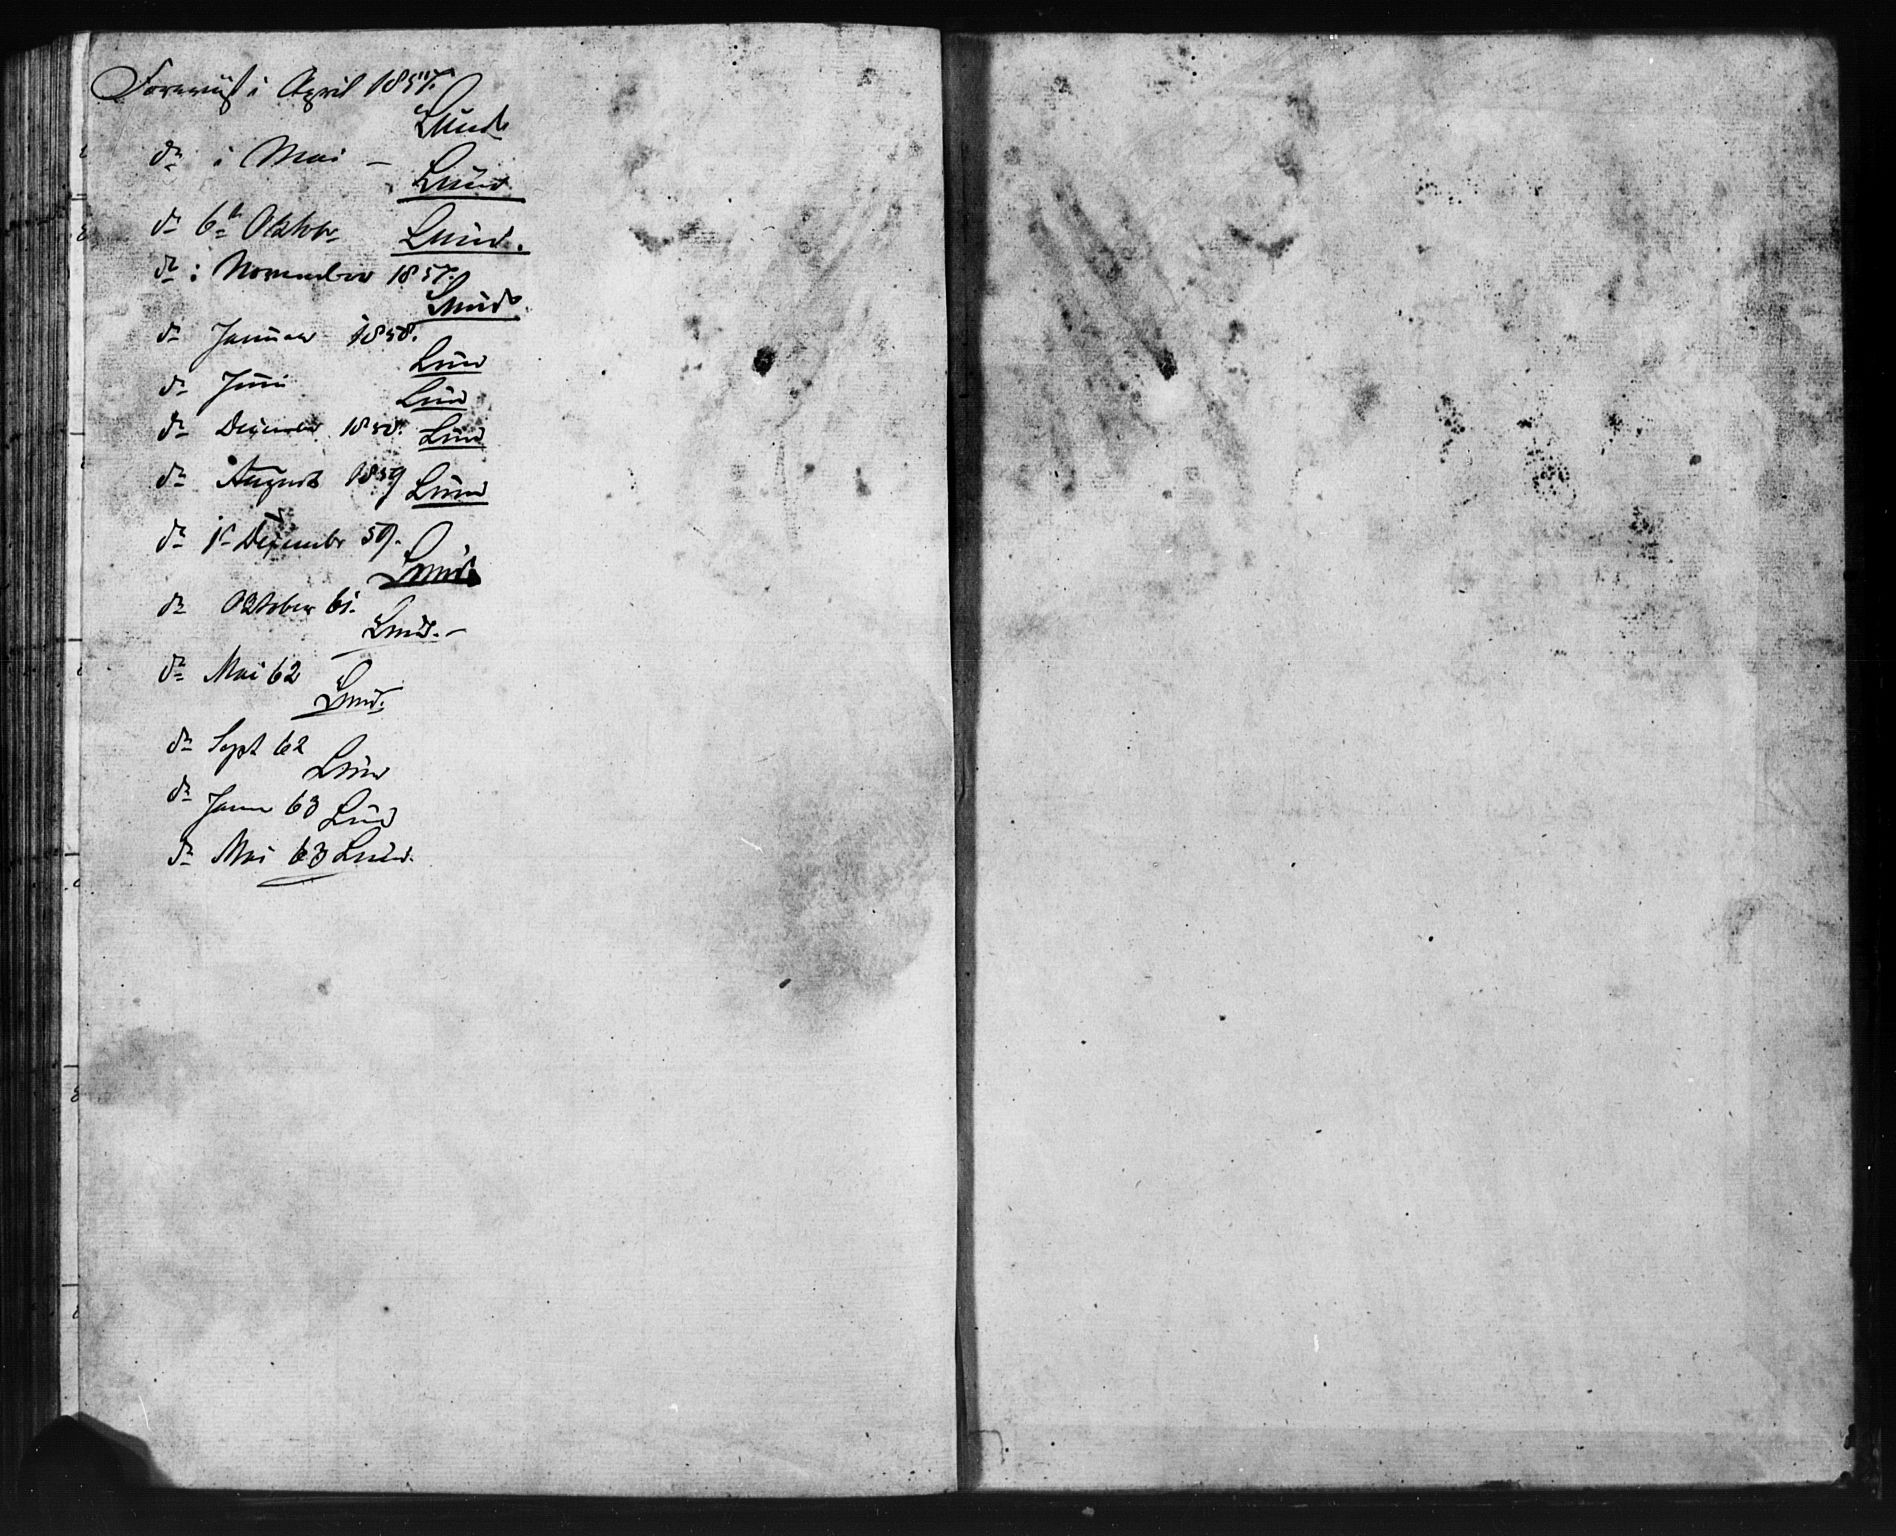 Foreviist i April 1857.
Lund
do i Mai –
Lund
do 6te Oktobr
Lund.
do i November 1857.
Lund.
do Januar 1858.
Lund
do Juni
Lund
do December 1858.
Lund
do August 1859 Lund
do 1ste Decembr 59.
Lund.
do Oktober 61.
Lund. –
do Mai 62
Lund.
do Sept 62
Lund
do Janu 63 Lund
do Mai 63 Lund.